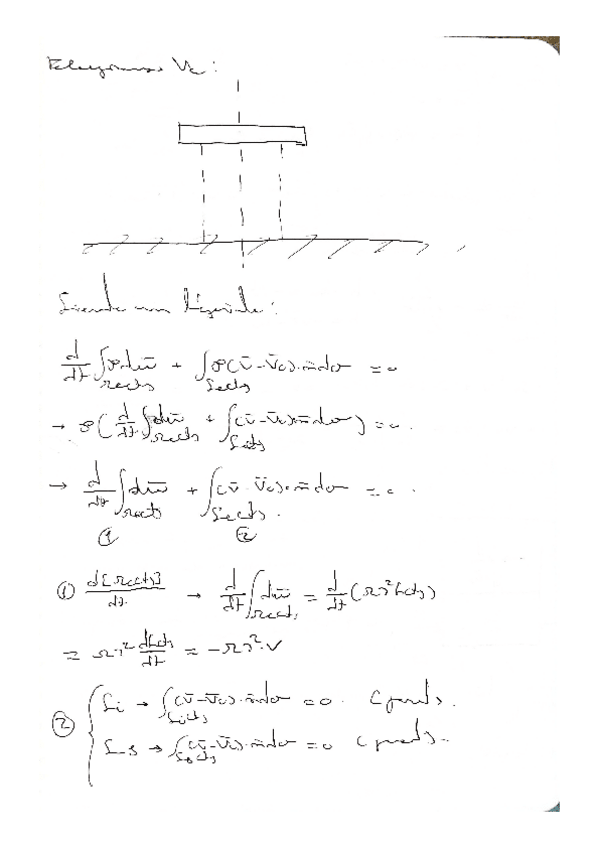 Elegimos Vc:
Siendo un líquido:
d/dt ∫Ωc(t) ρ dω̄ + ∫Sc(t) ρ(v̄-v̄c)·n̄ dσ = 0
→ ρ( d/dt ∫Ωc(t) dω̄ + ∫Sc(t) (v̄-v̄c)·n̄ dσ ) = 0.
→ d/dt ∫Ωc(t) dω̄ + ∫Sc(t) (v̄-v̄c)·n̄ dσ = 0.
① ②
① d[Ωc(t)]/dt. → d/dt ∫Ωc(t) dω̄ = d/dt (πr²h(t))
= πr² dh(t)/dt = -πr²·V
② { Si → ∫Si(t) (v̄-v̄c)·n̄ dσ = 0. (pared).
Ss → ∫Ss(t) (v̄-v̄c)·n̄ dσ = 0 (pared).